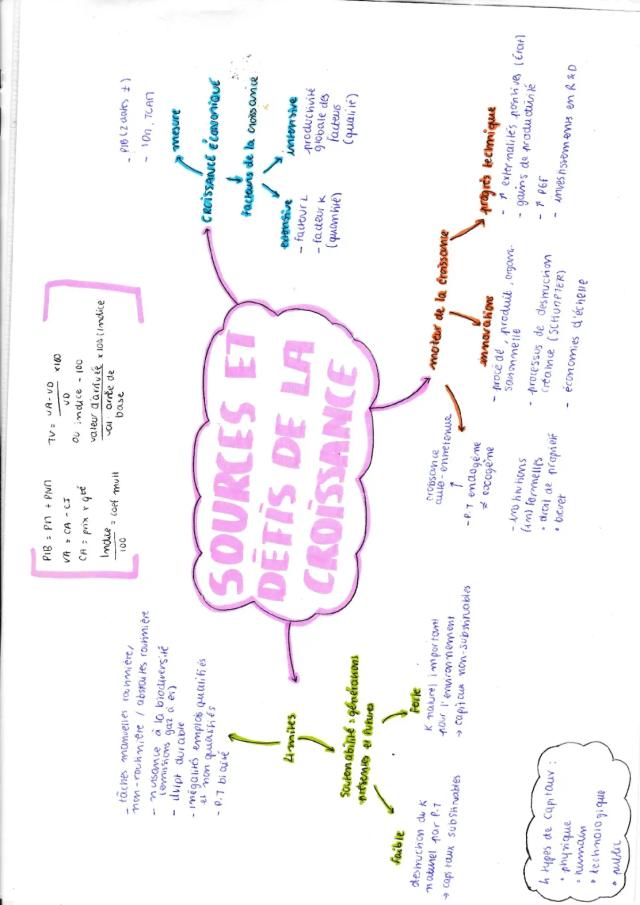 SOURCES ET
DÉFIS DE LA
CROISSANCE
CROISSANCE économique
mesure
- PIB (2 dates ≠)
- 10n, TCAM
facteurs de la croissance
extensive
- facteur L
- facteur K
(quantité)
intensive
productivité
globale des
facteurs
(qualité)
moteur de la croissance
progrès technique
- ↑ externalités positives (État)
- gains de productivité
- ↑ PGF
- investissements en R&D
innovations
- procédé, produit, organi-
sationnelle
- processus de destruction
créatrice (SCHUMPETER)
- économies d'échelle
croissance
auto-entretenue
↑
- P.T endogène
≠ exogène
- institutions
(in)formelles
• droit de propriété
• brevet
Limites
- tâches manuelles routinière/
non-routinière / abstraites routinière
- nuisance à la biodiversité
(émissions gaz à es)
- dvpt durable
- inégalités emplois qualifiés
et non qualifiés
- P.T biaisé
Soutenabilité : générations
présentes et futures
Faible
destruction du K
naturel par P.T
→ capitaux substituables
Forte
K naturel important
pour l'environnement
→ capitaux non-substituables
PIB = PM + PNM
VA = CA - CI
CA = prix x qté
Indice = coef mult
100
TV = VA - VD x100
VD
ou indice - 100
valeur d'arrivée x 100 = indice
de
base
4 types de capitaux :
• physique
• humain
• technologique
• public